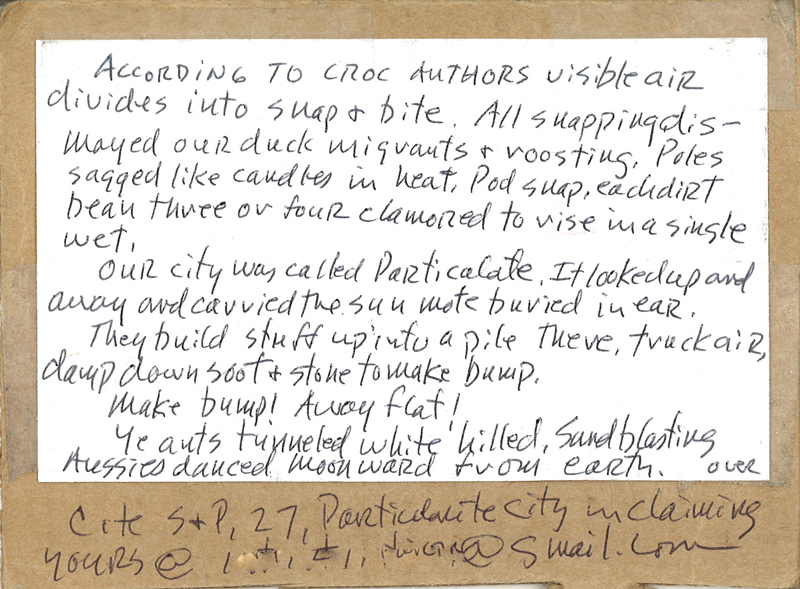 ACCORDING TO CROC AUTHORS visible air
divides into snap & bite. All snapping dis-
mayed our duck migrants & roosting. Poles
sagged like candles in heat. Pod snap, each dirt
bean three or four clamored to rise in a single
wet.
Our city was called Particalate. It looked up and
away and carried the sun mote buried in ear.
They build stuff up into a pile There, truck air,
damp down soot & stone to make bump.
Make bump! Away flat!
Ye ants tunneled white hilled. Sandblasting
Aussies danced moonward from earth. over
Cite S & P, 27, Particulate city in claiming
yours @ @ gmail.com